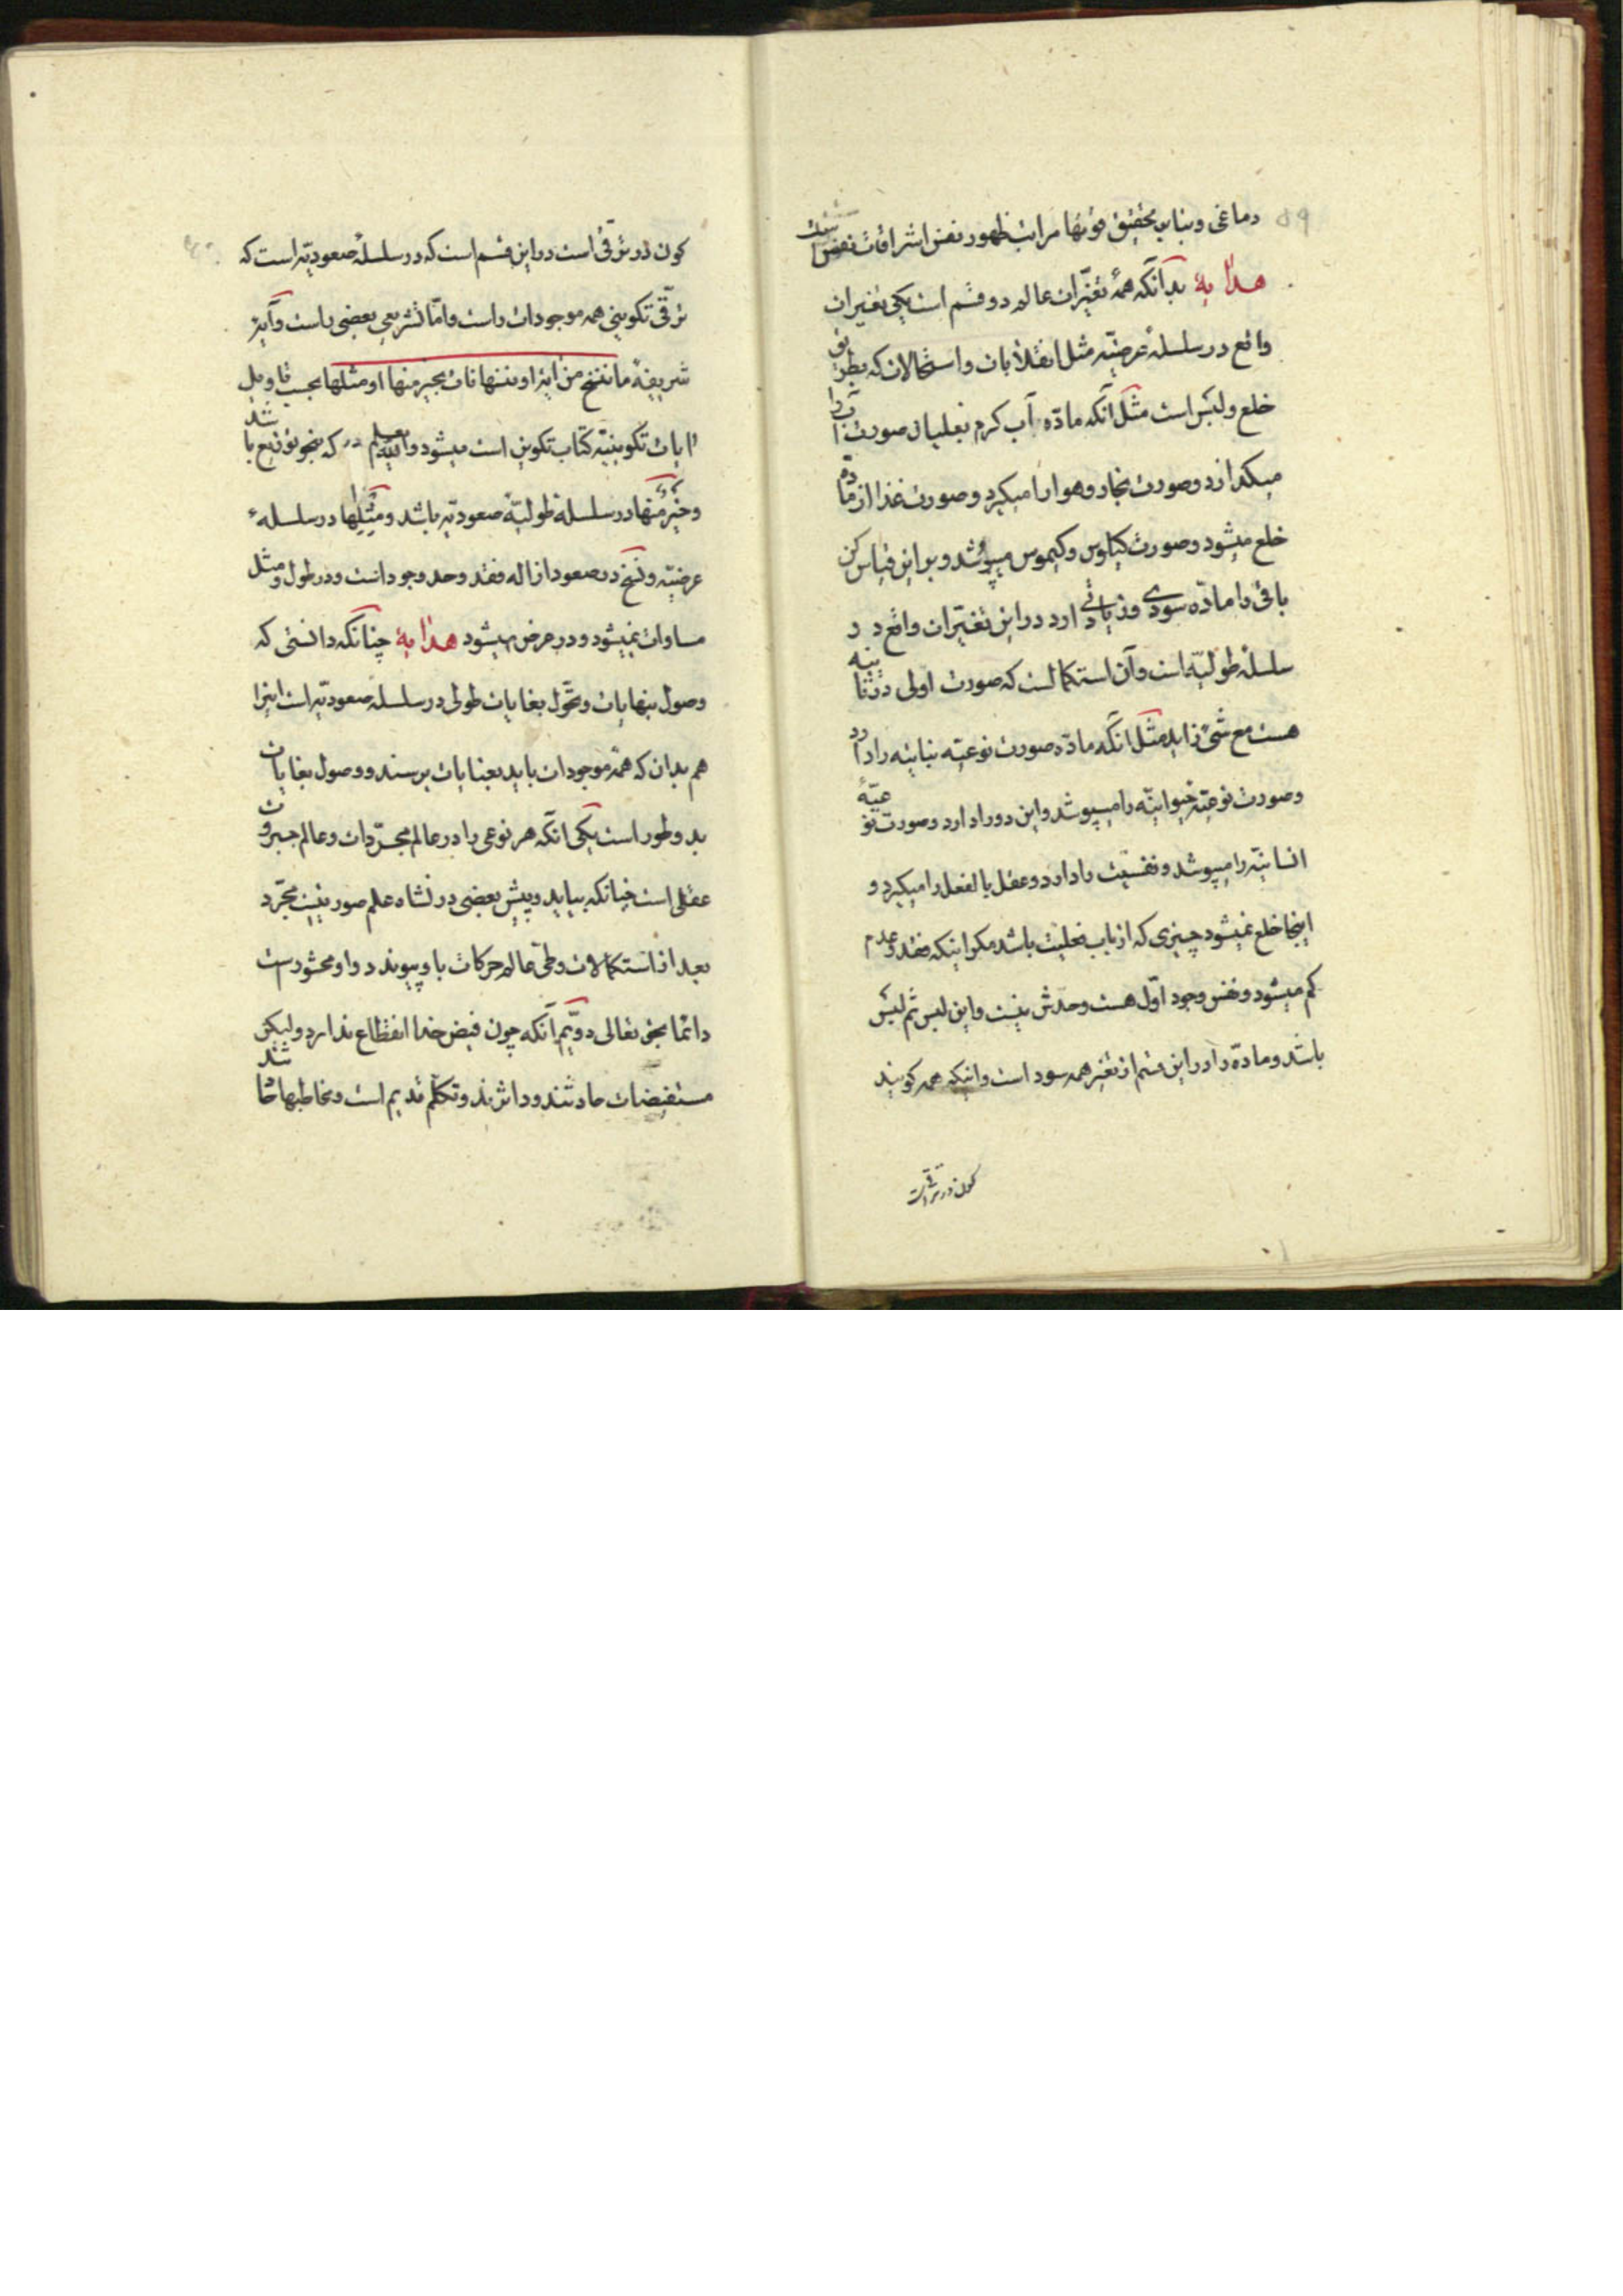 ۵۹
دماغی و بنابر تحقیق قوتها مراتب ظهور نفس اشراقات نفس است
هدایة بدانکه همهٔ تغیّرات عالم دو قسم است یکی تغیرات
واقع در سلسلهٔ عرضیّه مثل انقلابات و استحالات که بطریق
خلع و لبس است مثل آنکه مادّه آب کرم بغلیان صورت آب را
میکذارد و صورت بخار و هوا را میکیرد و صورت غذا از مادّه
خلع میشود و صورت کیلوس و کیموس میپوشد و بر این قیاس کن
باقی را ماده سودی و زیانی دارد در این تغیّرات واقع در
سلسلهٔ طولیّه است و آن استکمالست که صورت اولی در ثانیه
هست مع شئ زاید مثل آنکه مادّه صورت نوعیّه نباتیّه را دارد
و صورت نوعیّه حیوانیّه را میپوشد و این دو را دارد و صورت نوعیّهٔ
انسانیّه را میپوشد و نفسیّت را دارد و عقل بالفعل را میکیرد و
اینجا خلع نمیشود چیزی که از باب فعلیت باشد مکر اینکه فقد و عدم
کم میشود و نفس وجود اوّل هست و حدش نیست و این لبس ثم لبس
باشد و مادّه را در این قسم از تغیر همه سود است و اینکه همه کویند
کون در ترقی است
کون در ترقّی است در این قسم است که در سلسلهٔ صعودیّه است که
ترقّی تکوینی همه موجودات راست و امّا تشریعی بعضی راست و آیهٔ
شریفهٔ ما ننسخ من آیة او ننسها نات بخیر منها او مثلها بحسب تاویل
آیات تکوینیّه کتاب تکوین است میشود که بنحو توزیع باشد
و خیر منها در سلسلهٔ طولیّهٔ صعودیّه باشد و مثلها در سلسلهٔ
عرضیّه و نسخ در صعود ازاله فقد و حد وجود است و در طول و مثل
مساوات نمیشود و در عرض میشود هدایة چنانکه دانستی که
وصول بنهایات و تحوّل بغایات طولی در سلسلهٔ صعودیّه است اینرا
هم بدان که همهٔ موجودات باید بغایات برسند و وصول بغایات
بدو طور است یکی آنکه هر نوعی را در عالم مجرّدات و عالم جبروت
عقلی است چنانکه بیاید و پیش بعضی در نشاه علم صوریست مجرّد
بعد از استکمالات و طی عالم حرکات باو پیوندد و او محشور است
دائما بحق تعالی دویّم آنکه چون فیض خدا انقطاع ندارد و لیکن
مستفیضات حادثند و داثرند و تکلّم قدیم است و مخاطبها حادثند